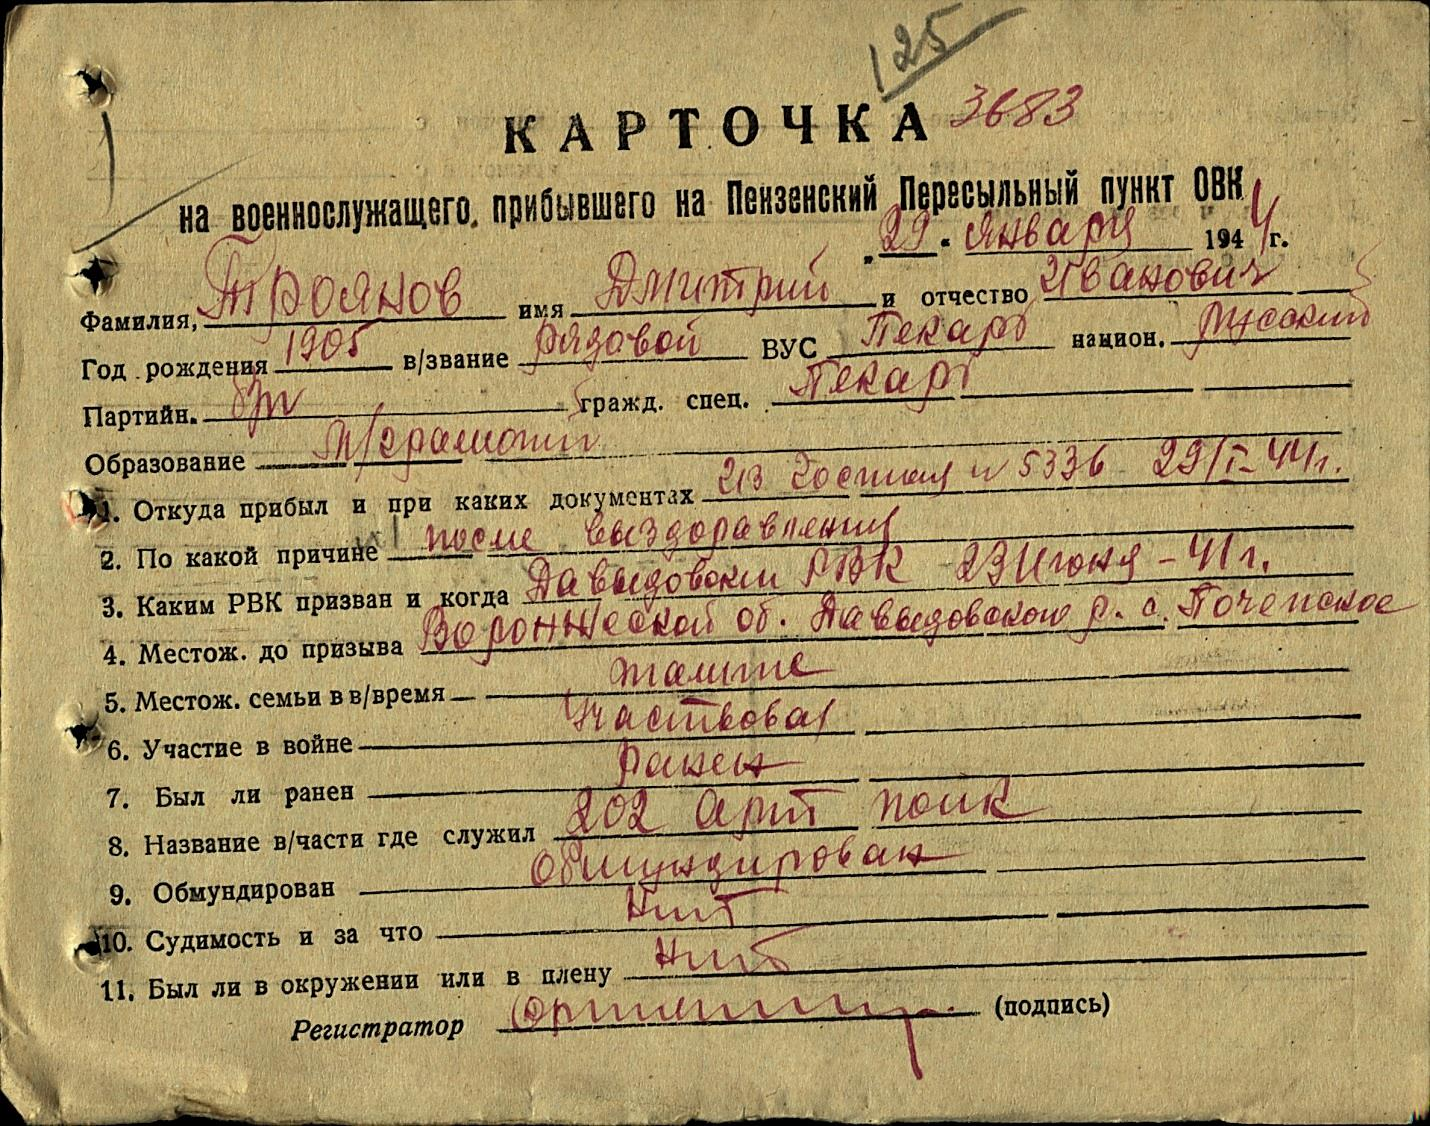 125
КАРТОЧКА 3683
на военнослужащего, прибывшего на Пензенский Пересыльный пункт ОВК
„29“ января 1944 г.
Фамилия, Троянов имя Дмитрий и отчество Иванович
Год рождения 1905 в/звание рядовой ВУС Пекарь национ. русский
Партийн. б/п гражд. спец. Пекарь
Образование М/грамотн
1. Откуда прибыл и при каких документах из госпиталя № 5336 29/I-44 г.
2. По какой причине после выздоравления
3. Каким РВК призван и когда Давыдовским РВК 23 Июня - 41 г.
4. Местож. до призыва Воронжеской об. Давыдовского р. с. Поченское
5. Местож. семьи в в/время там же
6. Участие в войне Участвовал
7. Был ли ранен Ранен
8. Название в/части где служил 202 Арт полк
9. Обмундирован Обмундирован
10. Судимость и за что Нет
11. Был ли в окружении или в плену Нет
Регистратор (подпись)